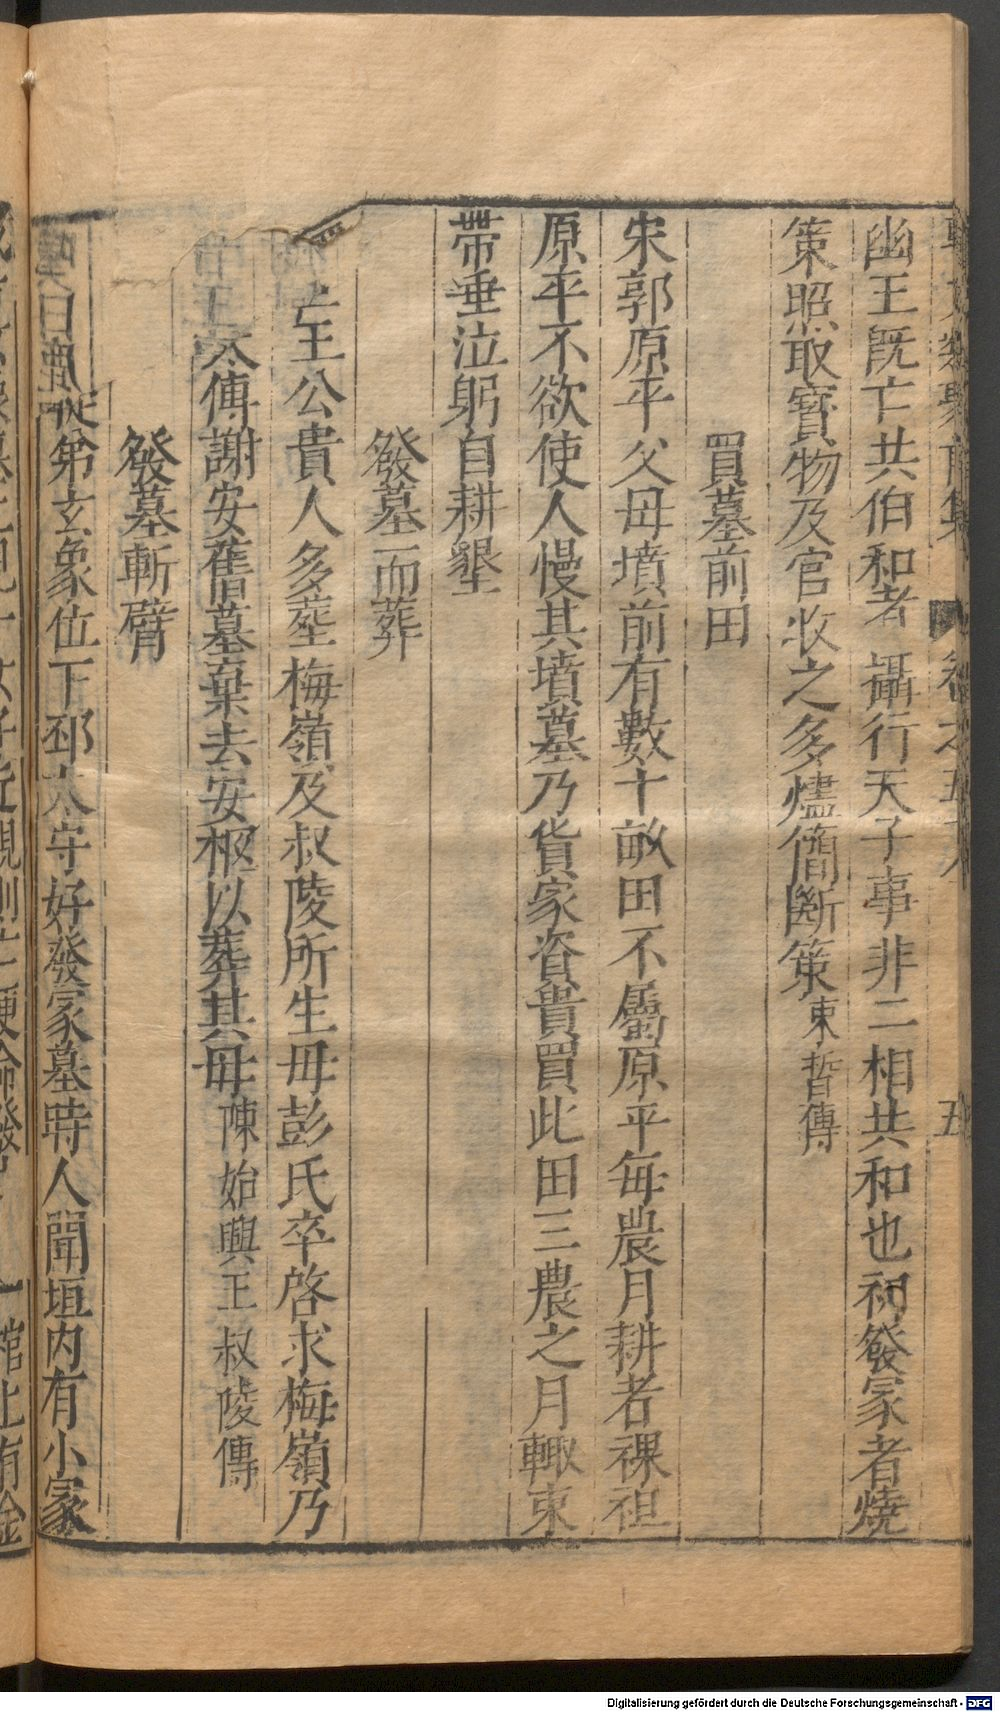 幽王既亡共伯和者攝行天子事非二相共和也初發冢者燒
策照取寶物及官收之多燼簡斷策束晳傳
買墓前田
宋郭原平父母墳前有數十畝田不屬原平每農月耕者裸袒
原平不欲使人慢其墳墓乃貨家資貴買此田三農之月輙束
帶垂泣躬自耕墾
發墓而葬
王公貴人多塟梅嶺及叔陵所生母彭氏卒啓求梅嶺乃
太傅謝安舊墓棄去安柩以葬其母陳始興王叔陵傳
發墓斬臂
從弟玄象位下邳太守好發冢墓時人聞垣内有小冢
Digitalisierung gefördert durch die Deutsche Forschungsgemeinschaft - DFG